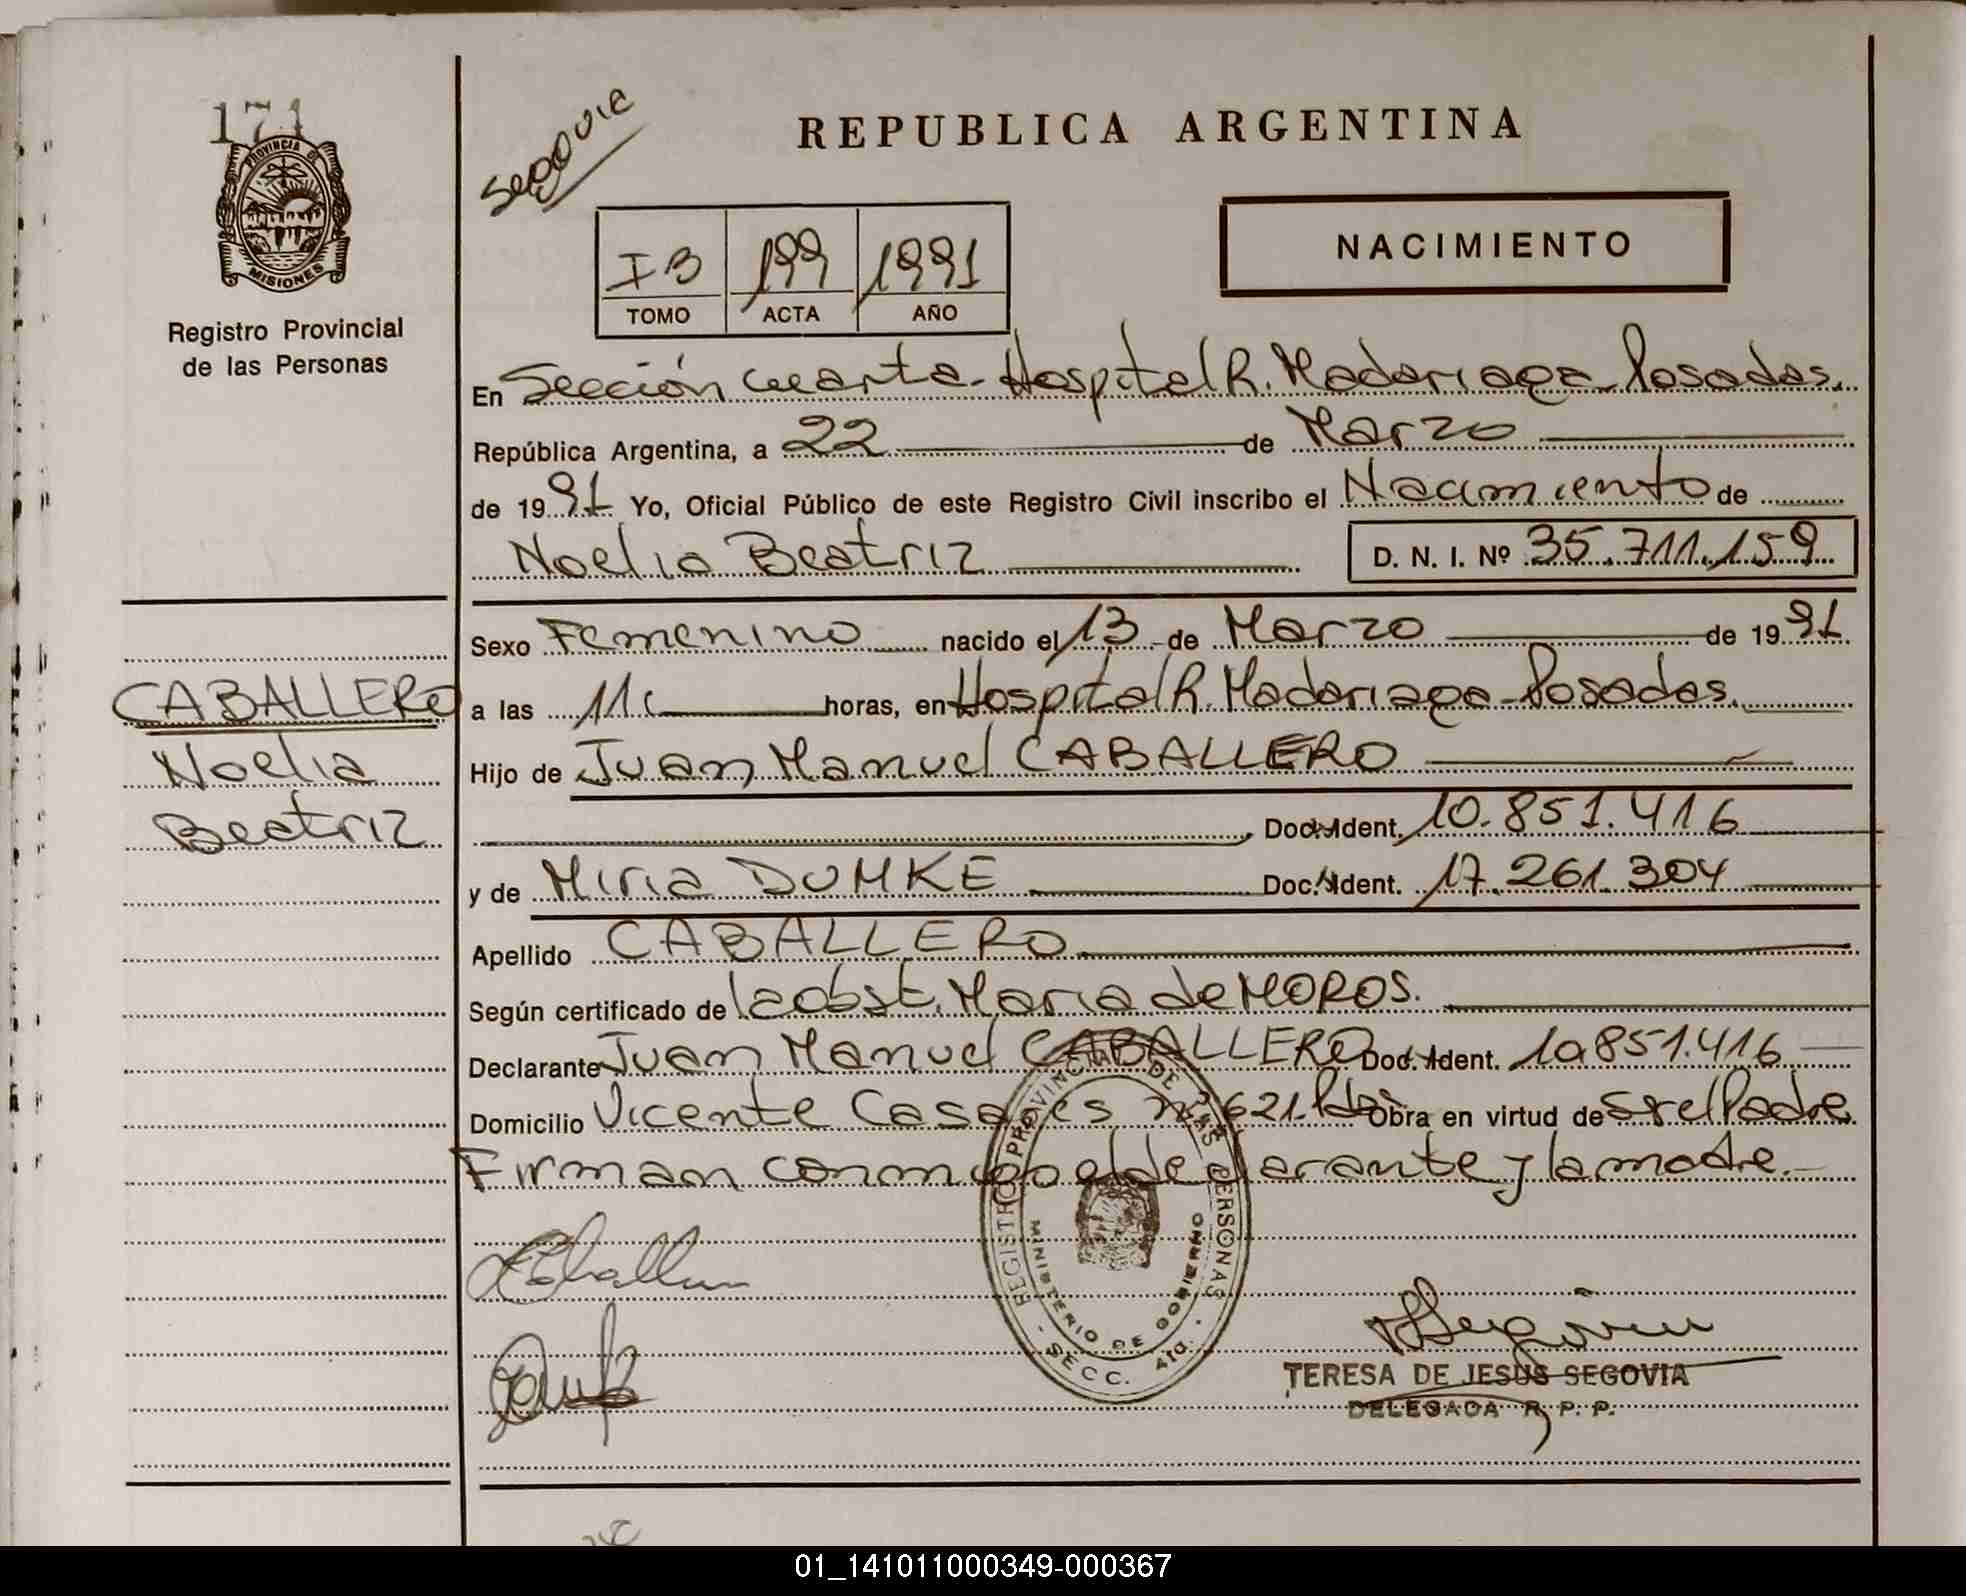 171
PROVINCIA DE
MISIONES
Registro Provincial
de las Personas
Segovia
REPUBLICA ARGENTINA
I B 199 1991
TOMO ACTA AÑO
NACIMIENTO
En Sección cuarta - Hospital R. Madariaga - Posadas.
República Argentina, a 22 de Marzo
de 1991 Yo, Oficial Público de este Registro Civil inscribo el Nacimiento de
Noelia Beatriz D. N. I. Nº 35.711.159
Sexo Femenino nacido el 13 de Marzo de 1991
a las 11 horas, en Hospital R. Madariaga - Posadas.
Hijo de Juan Manuel CABALLERO
Doc. Ident. 10.851.416
y de Miria DUMKE Doc. Ident. 17.261.304
Apellido CABALLERO
Según certificado de la obst. Maria de MOROS.
Declarante Juan Manuel CABALLERO Doc. Ident. 10.851.416
Domicilio Vicente Casares nº 621. Pdas Obra en virtud de ser el Padre
Firman conmigo el declarante y la madre.-
CABALLERO
Noelia
Beatriz
REGISTRO PROVINCIAL DE LAS PERSONAS
MINISTERIO DE GOBIERNO
- SECC. 4ta. -
TERESA DE JESUS SEGOVIA
DELEGADA R. P. P.
01_141011000349-000367